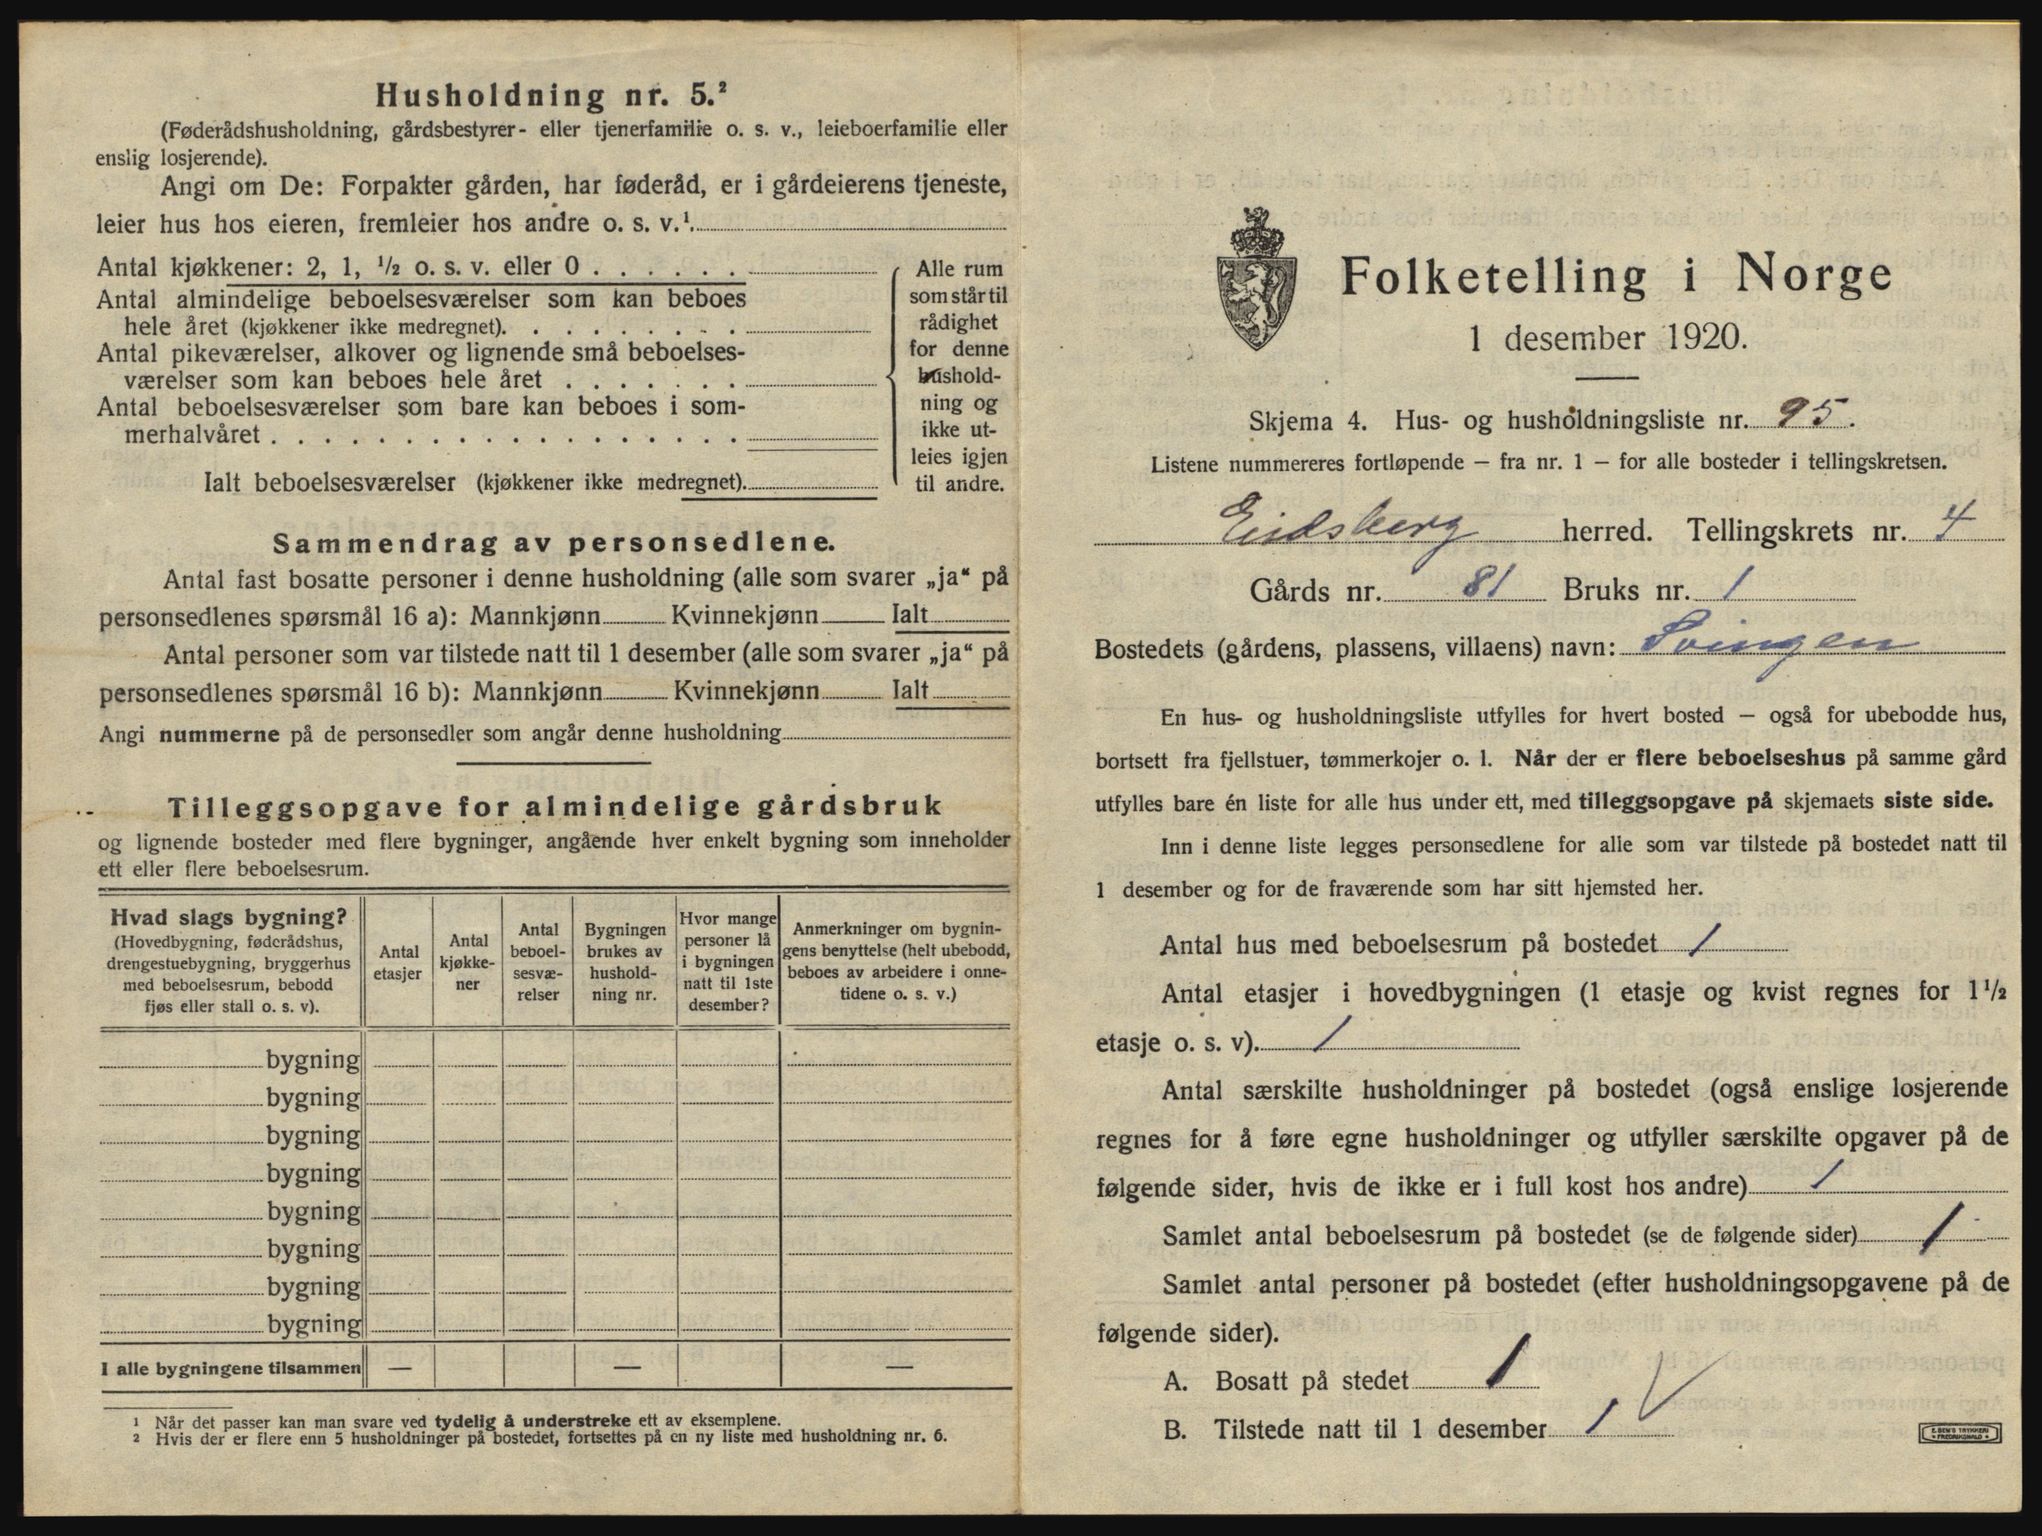 Husholdning nr. 5.²
(Føderådshusholdning, gårdsbestyrer- eller tjenerfamilie o. s. v., leieboerfamilie eller
enslig losjerende).
Angi om De: Forpakter gården, har føderåd, er i gårdeierens tjeneste,
leier hus hos eieren, fremleier hos andre o. s. v.¹
Antal kjøkkener: 2, 1, ½ o. s. v. eller 0 . . . . . .
Antal almindelige beboelsesværelser som kan beboes
hele året (kjøkkener ikke medregnet). . . . . . . . .
Antal pikeværelser, alkover og lignende små beboelses-
værelser som kan beboes hele året . . . . . . .
Antal beboelsesværelser som bare kan beboes i som-
merhalvåret . . . . . . . . . . . . . . . . . .
Ialt beboelsesværelser (kjøkkener ikke medregnet).
Alle rum
som står til
rådighet
for denne
hushold-
ning og
ikke ut-
leies igjen
til andre.
Sammendrag av personsedlene.
Antal fast bosatte personer i denne husholdning (alle som svarer „ja“ på
personsedlenes spørsmål 16 a): Mannkjønn Kvinnekjønn Ialt
Antal personer som var tilstede natt til 1 desember (alle som svarer „ja“ på
personsedlenes spørsmål 16 b): Mannkjønn Kvinnekjønn Ialt
Angi nummerne på de personsedler som angår denne husholdning
Tilleggsopgave for almindelige gårdsbruk
og lignende bosteder med flere bygninger, angående hver enkelt bygning som inneholder
ett eller flere beboelsesrum.
Hvad slags bygning?
(Hovedbygning, føderådshus,
drengestuebygning, bryggerhus
med beboelsesrum, bebodd
fjøs eller stall o. s. v).
Antal
etasjer
Antal
kjøkke-
ner
Antal
beboel-
sesvæ-
relser
Bygningen
brukes av
hushold-
ning nr.
Hvor mange
personer lå
i bygningen
natt til 1ste
desember?
Anmerkninger om bygnin-
gens benyttelse (helt ubebodd,
beboes av arbeidere i onne-
tidene o. s. v.)
bygning
bygning
bygning
bygning
bygning
bygning
bygning
bygning
I alle bygningene tilsammen — — —
¹ Når det passer kan man svare ved tydelig å understreke ett av eksemplene.
² Hvis der er flere enn 5 husholdninger på bostedet, fortsettes på en ny liste med husholdning nr. 6.
Folketelling i Norge
1 desember 1920.
Skjema 4. Hus- og husholdningsliste nr. 95.
Listene nummereres fortløpende – fra nr. 1 – for alle bosteder i tellingskretsen.
Eidsberg herred. Tellingskrets nr. 4
Gårds nr. 81 Bruks nr. 1
Bostedets (gårdens, plassens, villaens) navn: Svingen
En hus- og husholdningsliste utfylles for hvert bosted – også for ubebodde hus,
bortsett fra fjellstuer, tømmerkojer o. l. Når der er flere beboelseshus på samme gård
utfylles bare én liste for alle hus under ett, med tilleggsopgave på skjemaets siste side.
Inn i denne liste legges personsedlene for alle som var tilstede på bostedet natt til
1 desember og for de fraværende som har sitt hjemsted her.
Antal hus med beboelsesrum på bostedet 1
Antal etasjer i hovedbygningen (1 etasje og kvist regnes for 1½
etasje o. s. v). 1
Antal særskilte husholdninger på bostedet (også enslige losjerende
regnes for å føre egne husholdninger og utfyller særskilte opgaver på de
følgende sider, hvis de ikke er i full kost hos andre) 1
Samlet antal beboelsesrum på bostedet (se de følgende sider) 1
Samlet antal personer på bostedet (efter husholdningsopgavene på de
følgende sider).
A. Bosatt på stedet 1
B. Tilstede natt til 1 desember 1